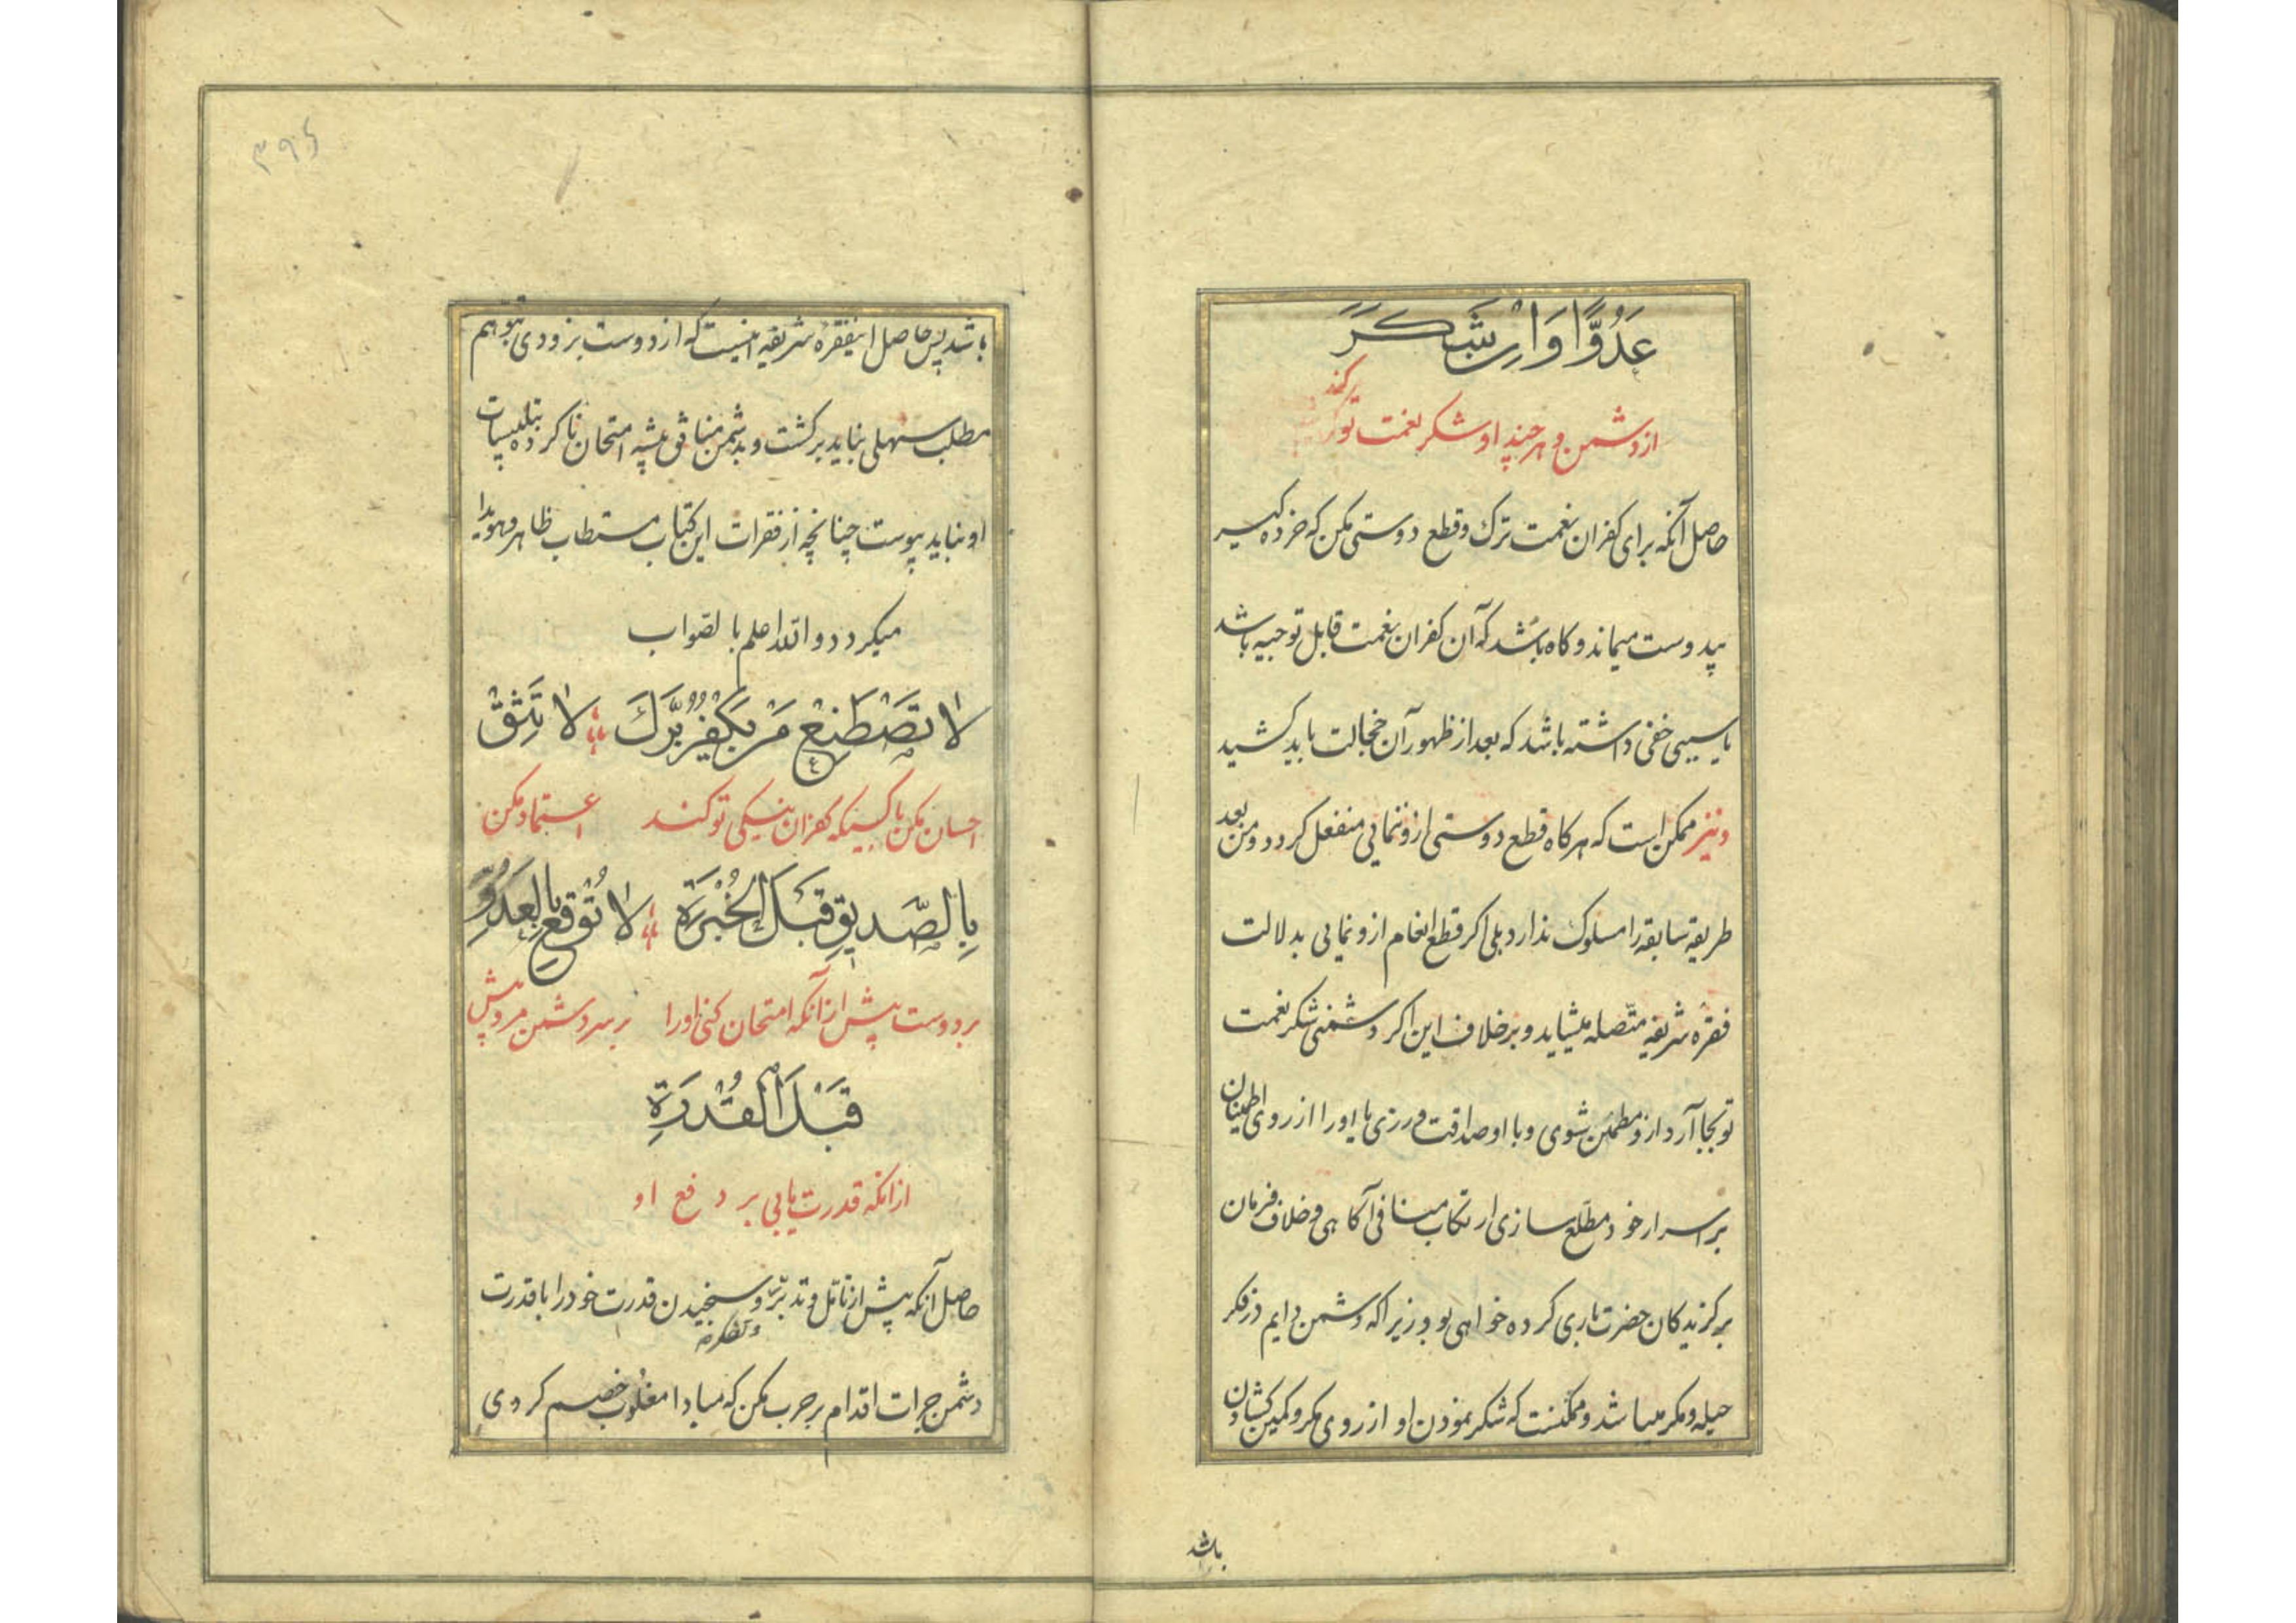 عَدُوًّا وَاِنْ شَكَرَ
از دشمن و هر چند او شکر نعمت تو کند
حاصل آنکه برای کفران نعمت ترک و قطع دوستی مکن که خرده گیر
بیدوست میماند و کاه باشد که آن کفران نعمت قابل توجیه باشد
یا سببی خفی داشته باشد که بعد از ظهور آن خجالت باید کشید
و نیز ممکن است که هرکاه قطع دوستی ازو نمایی منفعل کردد و من بعد
طریقه سابقه را مسلوک ندارد بلی اکر قطع انعام ازو نمایی بدلالت
فقره شریفه متّصله میشاید و بر خلاف این اکر دشمنی شکر نعمت
تو بجا آرد ازو مطمئن شوی و با او صداقت ورزی یا او را از روی اطمینان
بر اسرار خود مطلع سازی ارتکاب منافی آکاهی و خلاف فرمان
برکزیدکان حضرت باری کرده خواهی بود زیرا که دشمن دایم در فکر
حیله و مکر میباشد و ممکنست که شکر نمودن او از روی مکر و کمین کشادن
باشد
۳۹۶
باشد پس حاصل اینفقره شریفه اینست که از دوست بزودی بتوهم
مطلب سهلی نباید برکشت و بدشمن منافق پیشه امتحان ناکرده بتلبیسات
او نباید پیوست چنانچه از فقرات این کتاب مستطاب ظاهر و هویدا
میکردد و الله اعلم بالصواب
لا تَصْطَنِعْ مَنْ يَكْفُرُ بِرَّكَ لا تَثِقْ
احسان مکن با کسیکه کفران نیکی تو کند اعتماد مکن
بِالصَّدِيقِ قَبْلَ الْخُبْرَةِ لا تُوقِعْ بِالْعَدُوِّ
بر دوست پیش از آنکه امتحان کنی او را بر سر دشمن مرو پیش
قَبْلَ الْقُدْرَةِ
از انکه قدرت یابی بر دفع او
حاصل آنکه پیش از تامّل و تدبّر و سنجیدن قدرت خود را با قدرت
دشمن جرات اقدام بر حرب مکن که مبادا مغلوب خصم کردی